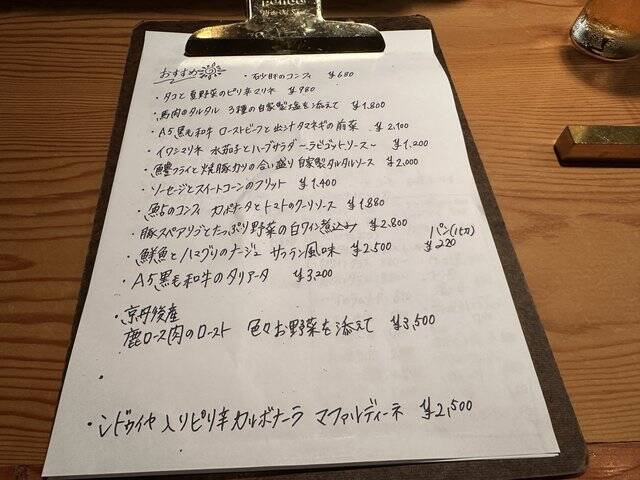 おすすめ
・砂肝のコンフィ ¥680
・タコと夏野菜のピリ辛マリネ ¥980
・馬肉のタルタル 3種の自家製塩を添えて ¥1,800
・A5黒毛和牛 ローストビーフと出シナタマネギの前菜 ¥2,100
・イワシマリネ 水茄子とハーブサラダ 〜ラビゴットソース〜 ¥1,200
・鱧フライと焼豚カツの合い盛り 自家製タルタルソース ¥2,000
・ソーセージとスイートコーンのフリット ¥1,400
・のコンフィ カポナータとトマトのクーリソース ¥1,880
・豚スペアリブとたっぷり野菜の白ワイン煮込み ¥2,800
パン(1切) ¥220
・鮮魚とハマグリのナージュ サフラン風味 ¥2,500
・A5黒毛和牛のタリアータ ¥3,200
・京丹後産
鹿ロース肉のロースト 色々お野菜を添えて ¥3,500
・ンドゥイヤ入りピリ辛カルボナーラ マファルディーネ ¥2,500